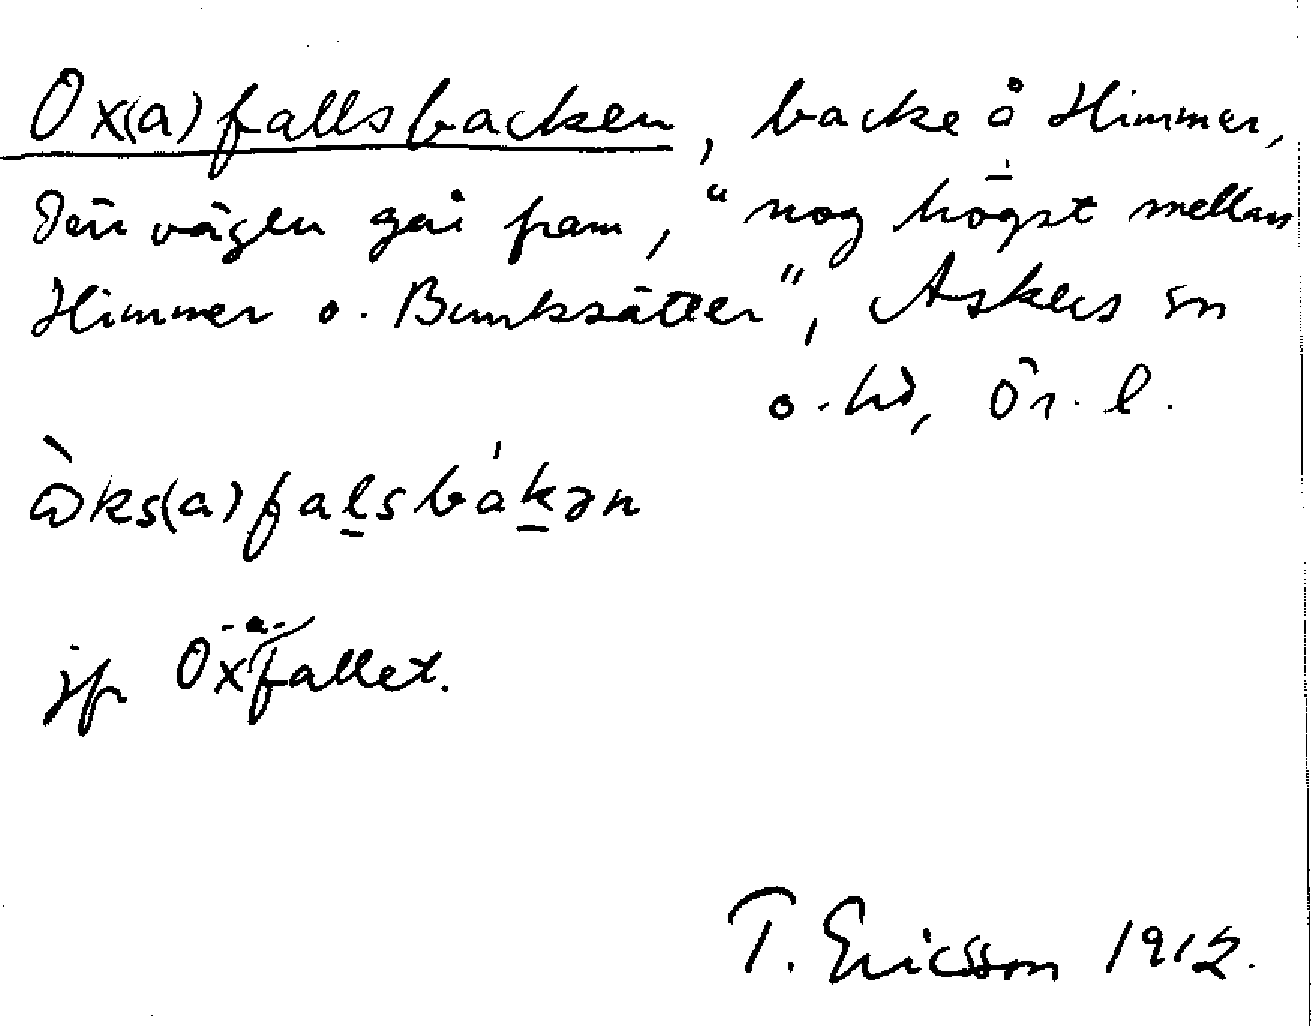 Ox(a)fallsbacken, backe å Himmer,
där vägen går fram, "nog högst mellan
Himmer o. Bunksätter", Askers sn
o. hd, Ör. l.
jfr Ox-a-fallet.
T. Ericsson 1912.